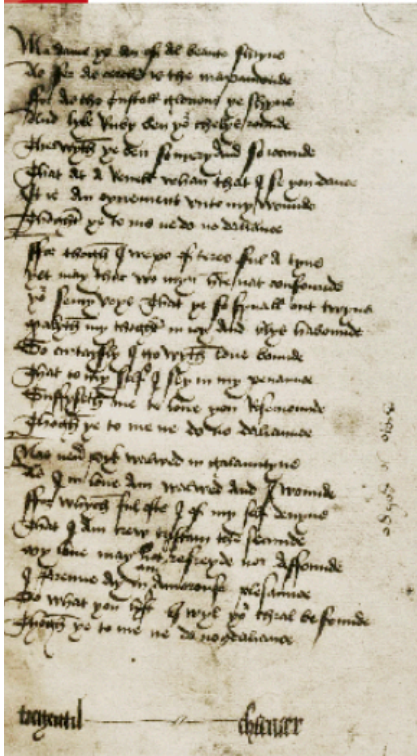 Ma dame ye ben of al beaute shryne
As fer as cercled is the mapamounde
ffor as the Cristall glorious ye shyne
And lyke Ruby ben yor chekys rounde
Therwyth ye ben so mery and so iocunde
That at a Reuell whan that I se you dance
It is an oynement vnto my wounde
Thoght ye to me ne do no daliance
ffor thogh I wepe of teres ful a tyne
Yet may that wo myn herte nat confounde
yor semy voys that ye so small out twyne
Makyth my thoght in ioy and blys habounde
So curtaysly I go wyth loue bounde
That to my self I sey in my penaunce
Suffyseth me to loue you Rosemounde
Thogh ye to me ne do no daliaunce
Nas neuer pyk walwed in galauntyne
As I in loue am walwed and I wounde
ffor whych ful ofte I of my self deuyne
That I am trew tristam the secunde
My loue may not refreyde nor affounde
I brenne ay in an amorouse plesaunce
Do what you lyst I wyl yor thral be founde
Thogh ye to me ne do no daliance
tregentil chaucer